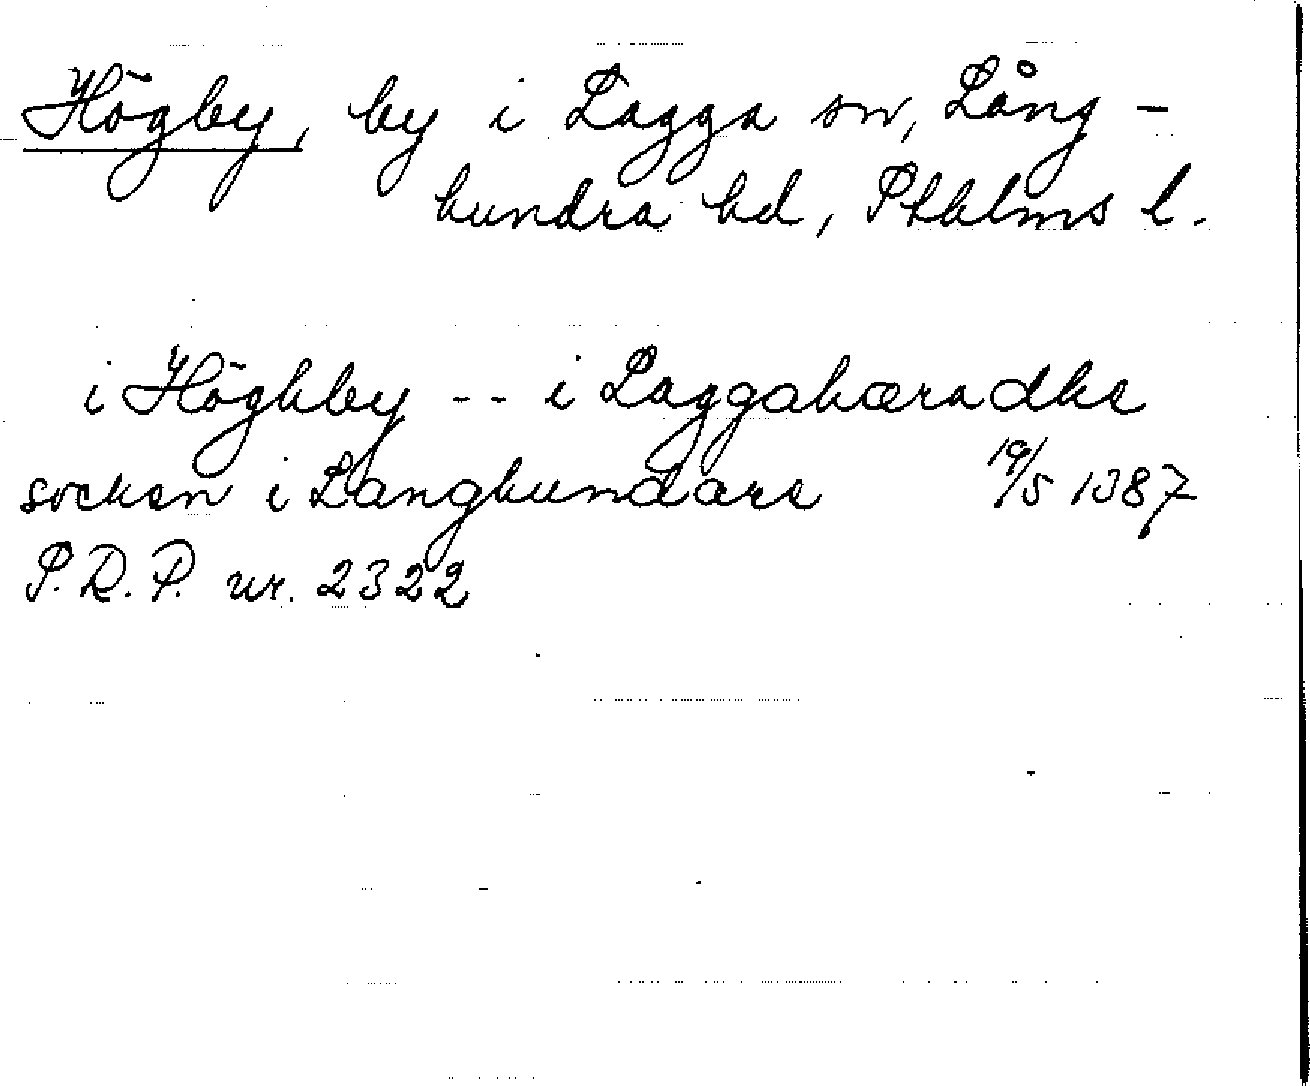 Högby, by i Lagga sn, Lång-
hundra hd, Sthlms l.
i Höghby -- i Laggahæradhe
socken i Langhundare 19/5 1387
P.R.P. nr. 2322